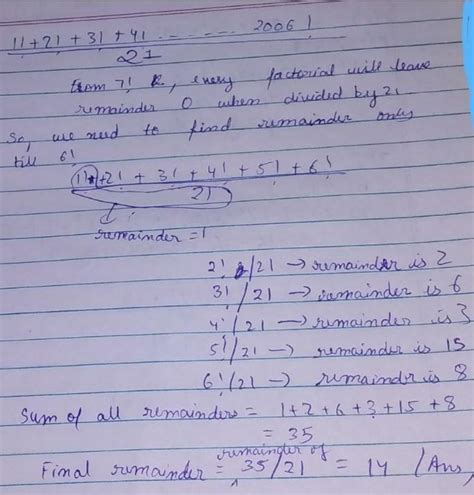 1! + 2! + 3! + 4! ........ 2006!
21
From 7! , every factorial will leave
remainder 0 when divided by 21.
So, we need to find remainder only
till 6!
1! + 2! + 3! + 4! + 5! + 6!
21
remainder = 1
2! /21 → remainder is 2
3! /21 → remainder is 6
4! /21 → remainder is 3
5! /21 → remainder is 15
6! /21 → remainder is 8
Sum of all remainders = 1+2+6+3+15+8
= 35
Final remainder = remainder of 35/21 = 14 (Ans)